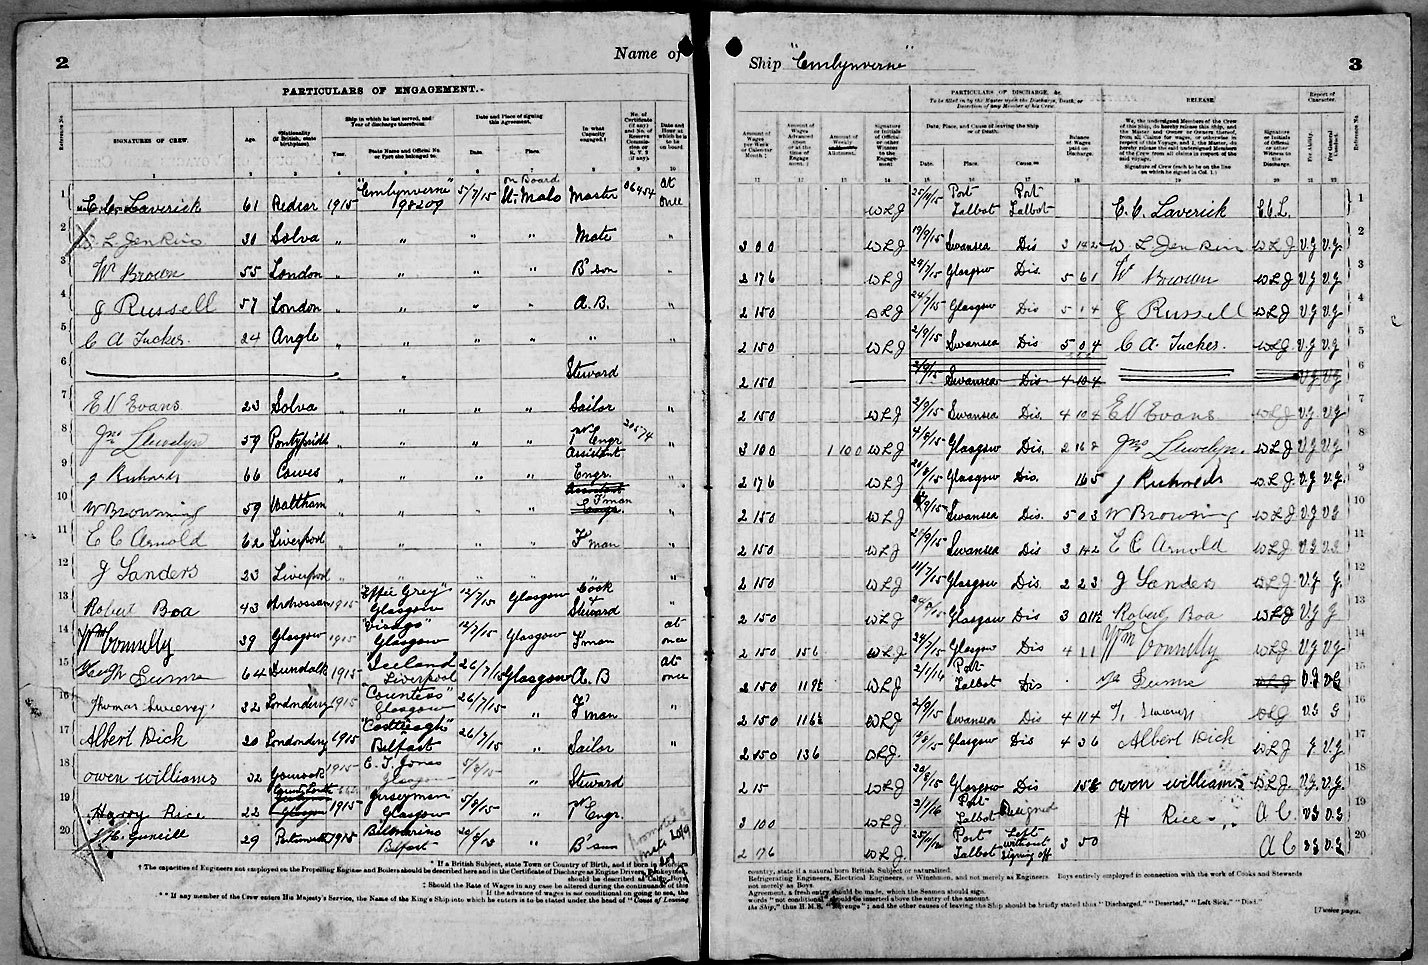 2
Name of
PARTICULARS OF ENGAGEMENT.
Reference No.
SIGNATURES OF CREW.
Age.
*Nationality (If British, state birthplace).
Ship in which he last served, and Year of discharge therefrom.
Year.
State Name and Official No. or Port she belonged to.
Date and Place of signing this Agreement.
Date.
Place.
In what Capacity engaged.†
No. of Certificate (if any) and No. of Reserve Commission or R.V.2 (if any).
Date and Hour at which he is to be on board
1 E. C. Laverick 61 Redcar 1915 "Emlynverne" 98209 5/7/15 on Board St. Malo Master 06454 at once
2 L Jenkins 30 Solva " " " " Mate "
3 W Brown 55 London " " " " B'son "
4 J Russell 57 London " " " " A.B. "
5 C A Tucker 24 Angle " " " " " "
6 " " Steward
7 E V Evans 23 Solva " " " " Sailor "
8 Jno Llewelyn 59 Pontypridd " " " " Engr. 20574 "
9 J Richards 66 Cowes " " " " Assistant Engr. "
10 W Browning 59 Waltham " " " " F'man "
11 E C Arnold 62 Liverpool " " " " F'man "
12 J Sanders 23 Liverpool " " " " " "
13 Robert Boa 43 Ardrossan 1915 "Effie Grey" Glasgow 12/7/15 Glasgow Cook Steward "
14 Wm Connelly 39 Glasgow 1915 Glasgow 12/7/15 Glasgow F'man at once
15 64 Dundalk 1915 "Iceland" Liverpool 26/7/15 Glasgow A.B at once
16 Thomas Sweeney 32 Londonderry 1915 "Countess" Glasgow 26/7/15 " F'man "
17 Albert Dick 20 Londonderry 1915 Belfast 26/7/15 " Sailor "
18 Owen Williams 32 Gourock 1915 E. T. Jones Glasgow " Steward
19 Harry Rice 22 1915 Jerseyman Glasgow " Engr.
20 29 Portsmouth 1915 Belfast " B'sun
* If a British Subject, state Town or Country of Birth, and if born in a foreign
† The capacities of Engineers not employed on the Propelling Engines and Boilers should be described here and in the Certificate of Discharge as Engine Drivers, Donkeymen,
should be described as Cabin Boys,
‡ Should the Rate of Wages in any case be altered during the continuance of this
|| If the advance of wages is not conditional on going to sea, the
** If any member of the Crew enters His Majesty's Service, the Name of the King's Ship into which he enters is to be stated under the head of "Cause of Leaving
Ship "Emlynverne"
3
PARTICULARS OF DISCHARGE, &c.
To be filled in by the Master upon the Discharge, Death, or Desertion of any Member of his Crew.
RELEASE
Report of Character.
Amount of Wages per Week or Calendar Month.‡
Amount of Wages Advanced upon or at the time of Engagement.||
Amount of Weekly or Monthly Allotment.
Signature or Initials of Official or other Witness to the Engagement
Date, Place, and Cause of leaving the Ship or of Death.
Date.
Place.
Cause.**
Balance of Wages paid on Discharge.
We, the undersigned Members of the Crew of this Ship, do hereby release this Ship, and the Master and Owner or Owners thereof, from all Claims for wages or otherwise, in respect of this Voyage; and I, the Master, do hereby release the undersigned Members of the Crew from all claims in respect of the said voyage.
Signature of Crew (each to be on the line on which he signed in Col. 1.)
Signature or Initials of Official or other Witness to Discharge.
For Ability.
For General Conduct.
Reference No.
WLJ 25/11/15 Port Talbot Port Talbot E. C. Laverick E.C.L. 1
3 0 0 WLJ 19/9/15 Swansea Dis 3 14 2 W L Jenkins WLJ V.G V.G. 2
2 17 6 WLJ 24/7/15 Glasgow Dis. 5 6 1 W Brown WLJ V.G V.G. 3
2 15 0 WLJ 24/7/15 Glasgow Dis 5 1 4 J Russell WLJ V.G V.G. 4
2 15 0 WLJ 2/9/15 Swansea Dis 5 0 4 C A. Tucker. WLJ V.G V.G. 5
2 15 0 2/9/15 Swansea Dis 4 10 4 V.G V.G 6
2 15 0 WLJ 2/9/15 Swansea Dis. 4 10 4 E V Evans WLJ V.G V.G. 7
3 10 0 1 10 0 WLJ 4/8/15 Glasgow Dis. 2 16 8 Jno Llewelyn. WLJ V.G V.G. 8
2 17 6 WLJ Glasgow Dis. 16 5 J Richards WLJ V.G V.G. 9
2 15 0 WLJ Swansea Dis. 5 0 3 W Browning WLJ V.G VG 10
2 15 0 WLJ Swansea Dis 3 14 2 E C Arnold WLJ V.G V.G. 11
2 15 0 WLJ Glasgow Dis. 2 2 3 J Sanders WLJ V.G G. 12
2 15 0 WLJ Glasgow Dis 3 Robert Boa WLJ V.G G 13
2 15 0 15 6 WLJ 24/7/15 Glasgow Dis Wm Connelly WLJ V.G V.G 14
2 15 0 WLJ 2/1/16 Port Talbot Dis WLJ V.G V.G 15
2 15 0 WLJ 2/9/15 Swansea Dis 4 11 4 T. Sweeney WLJ V.G G 16
2 15 0 13 6 WLJ Glasgow Dis 4 3 6 Albert Dick WLJ G. V.G 17
2 15 WLJ Glasgow Dis 15 8 Owen Williams WLJ V.G. V.G. 18
3 10 0 WLJ 2/1/16 Port Talbot Resigned H Rice A C V.G V.G 19
2 17 6 WLJ Port Talbot Left without signing off 3 5 0 A C V.G V.G. 20
country, state if a natural born British Subject or naturalized.
Refrigerating Engineers, Electrical Engineers or Winchmen, and not merely as Engineers. Boys entirely employed in connection with the work of Cooks and Stewards
not merely as Boys.
Agreement, a fresh entry should be made, which the Seamen should sign.
words "not conditional" should be inserted above the entry of the amount.
the Ship," thus H.M.S. "Revenge"; and the other causes of leaving the Ship should be briefly stated thus "Discharged," "Deserted," "Left Sick," "Died."
[Twelve pages.